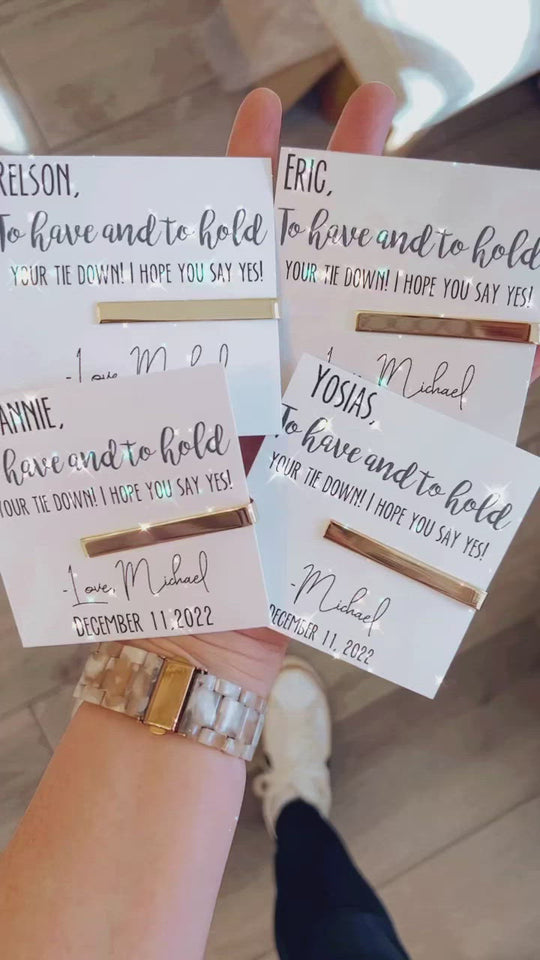 RELSON,
To have and to hold
YOUR TIE DOWN! I HOPE YOU SAY YES!
-Love, Michael
ERIC,
To have and to hold
YOUR TIE DOWN! I HOPE YOU SAY YES!
Michael
ANNIE,
have and to hold
YOUR TIE DOWN! I HOPE YOU SAY YES!
-Love, Michael
DECEMBER 11, 2022
YOSIAS,
To have and to hold
YOUR TIE DOWN! I HOPE YOU SAY YES!
-Michael
DECEMBER 11, 2022